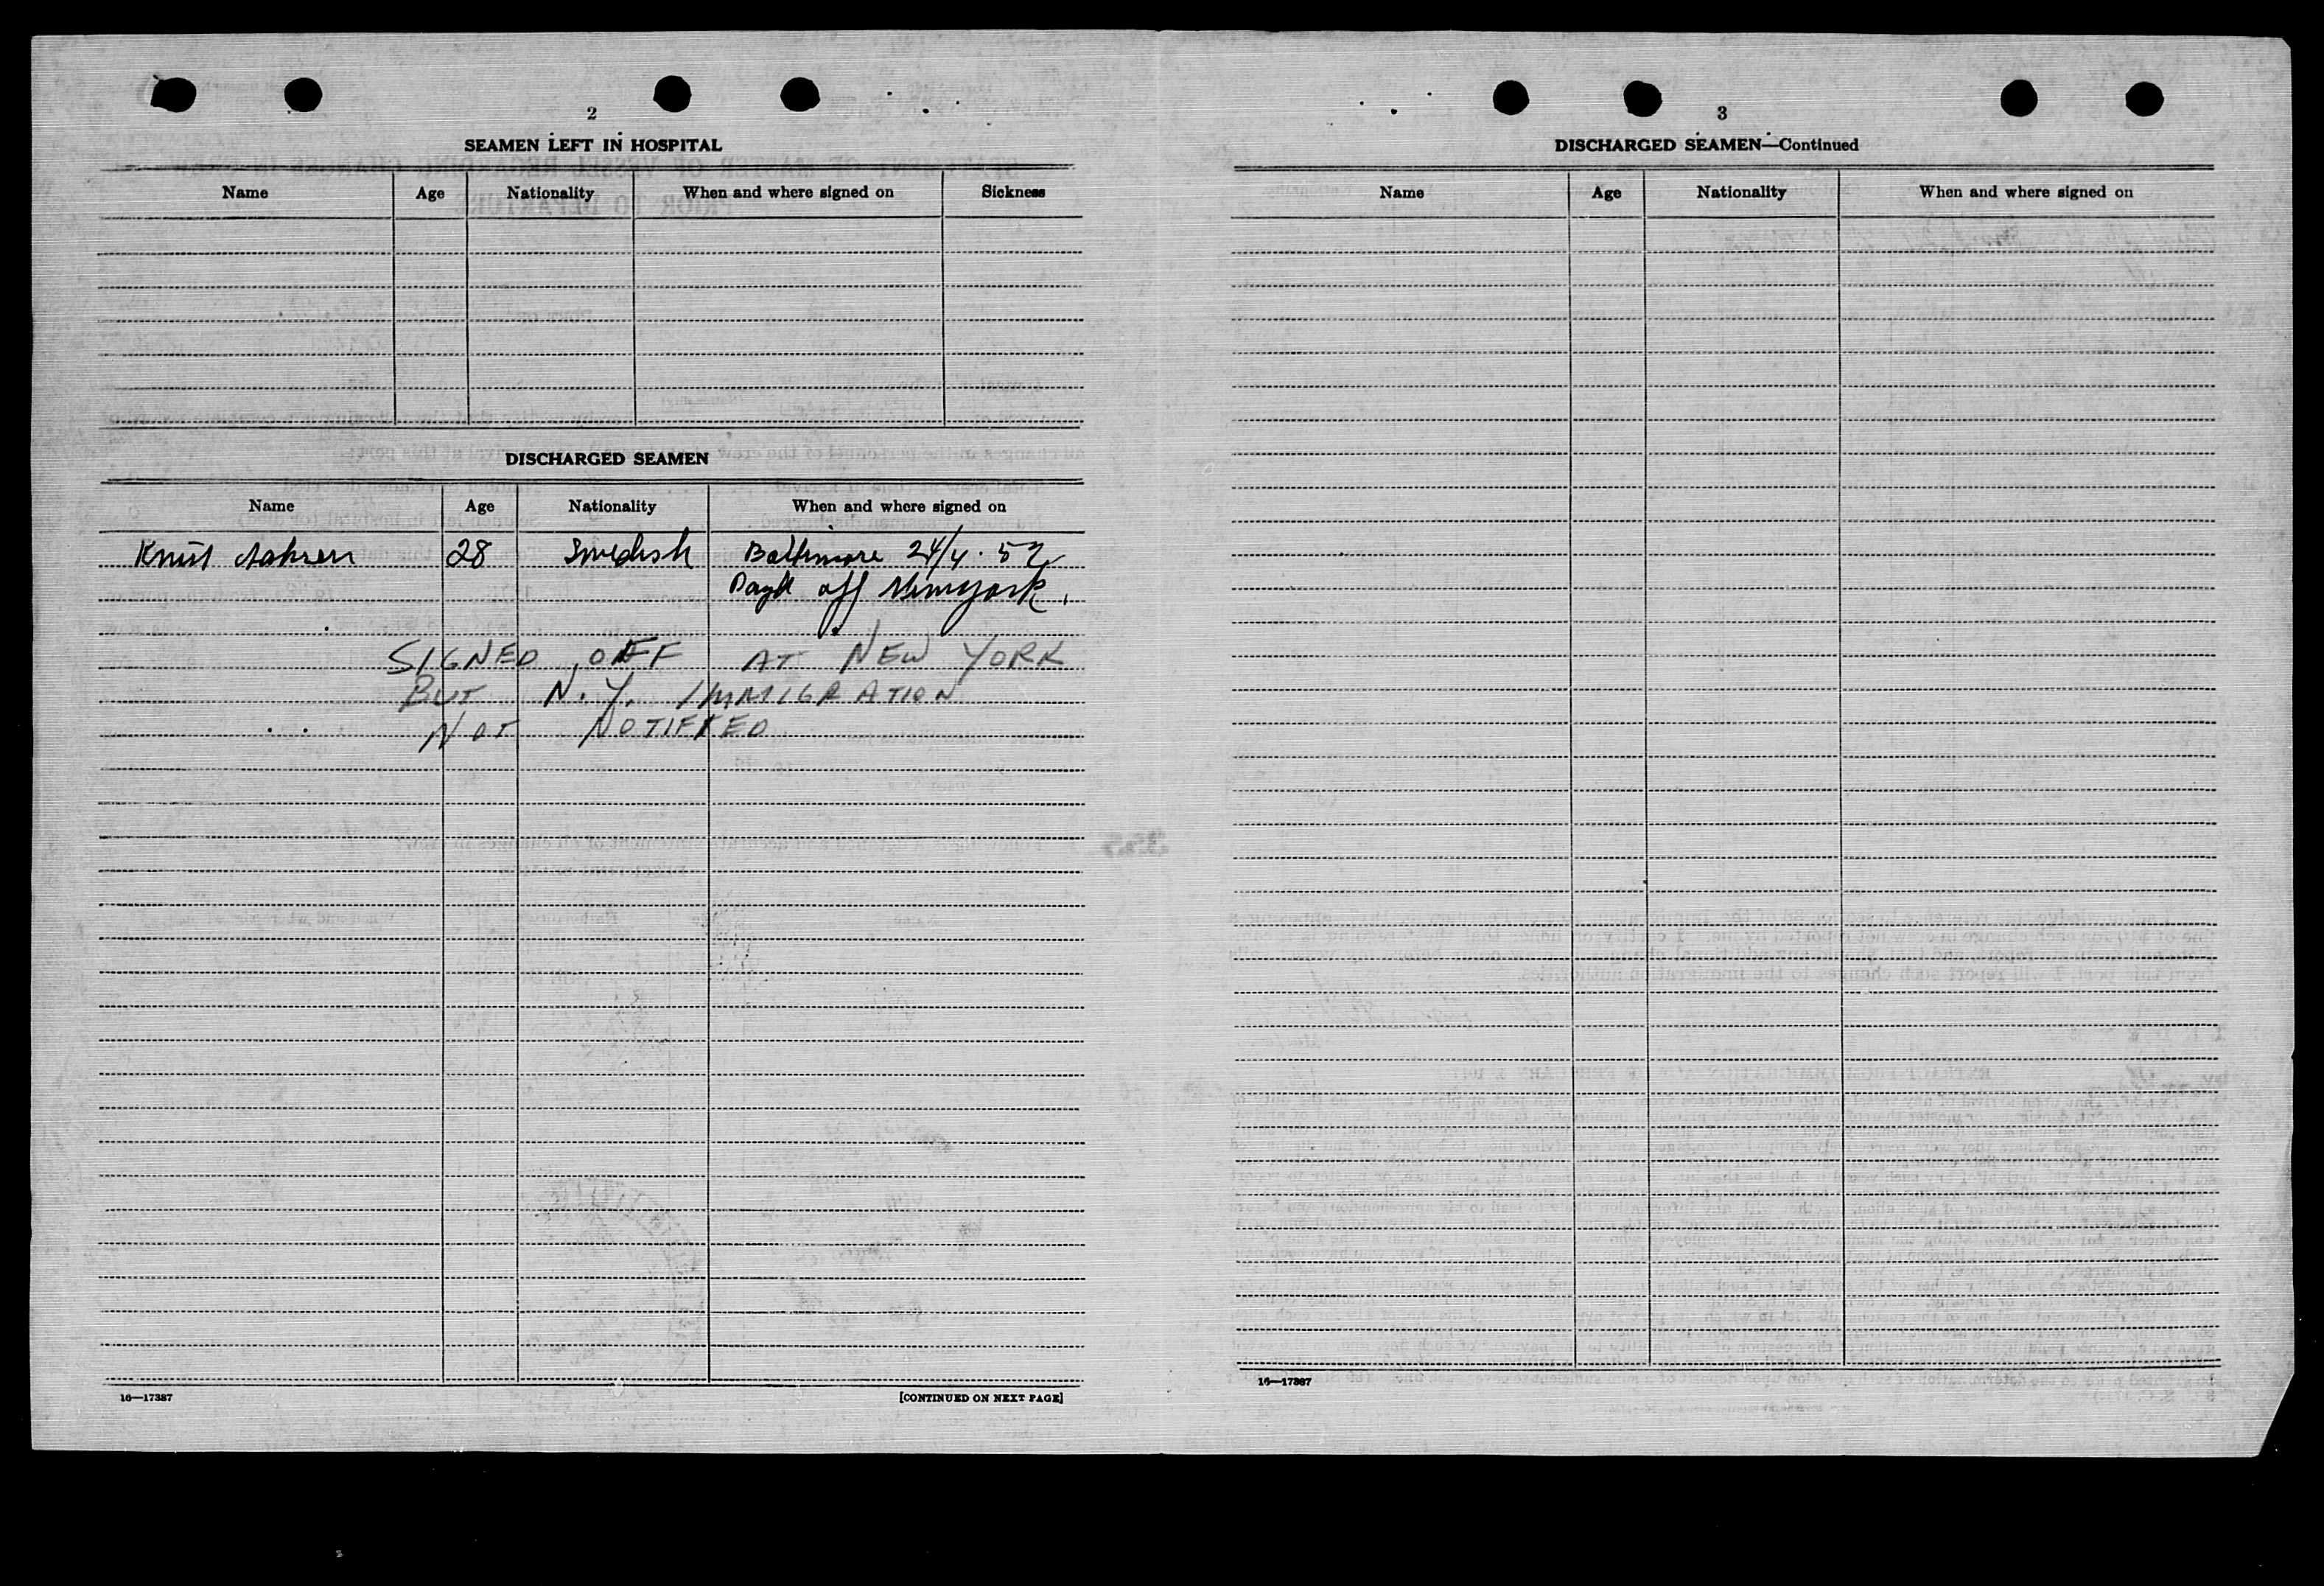 2
SEAMEN LEFT IN HOSPITAL
Name Age Nationality When and where signed on Sickness
DISCHARGED SEAMEN
Name Age Nationality When and where signed on
Knut 28 Swedish Baltimore 24/4 · 52
off Newyork.
SIGNED OFF AT NEW YORK
BUT N.Y. IMMIGRATION
NOT NOTIFIED
16—17387 [CONTINUED ON NEXT PAGE]
3
DISCHARGED SEAMEN—Continued
Name Age Nationality When and where signed on
16—17387